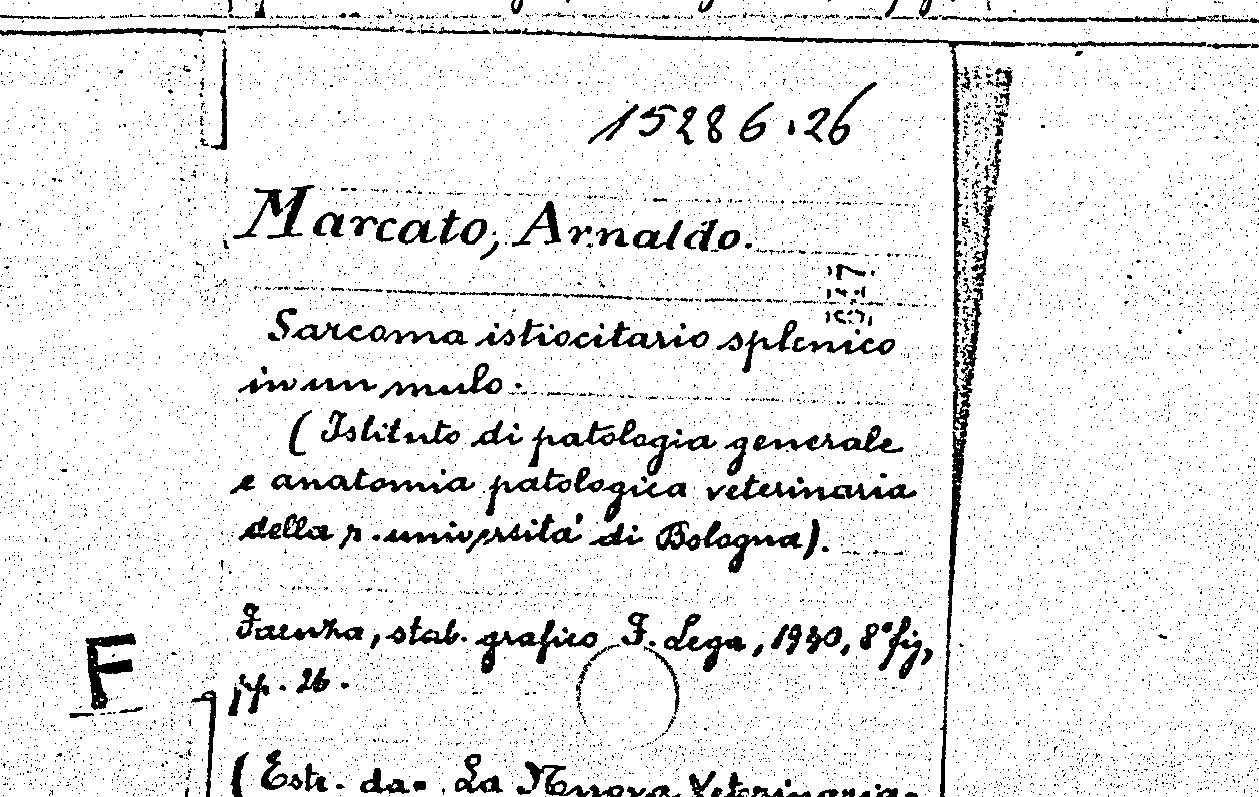 15286.26
Marcato, Arnaldo.
Sarcoma istiocitario splenico
in un mulo.
(Istituto di patologia generale
e anatomia patologica veterinaria
della r. università di Bologna).
Faenza, stab. grafico F. Lega, 1930, 8° fig,
pp. 26.
F
(Estr. da = La Nuova Veterinaria =